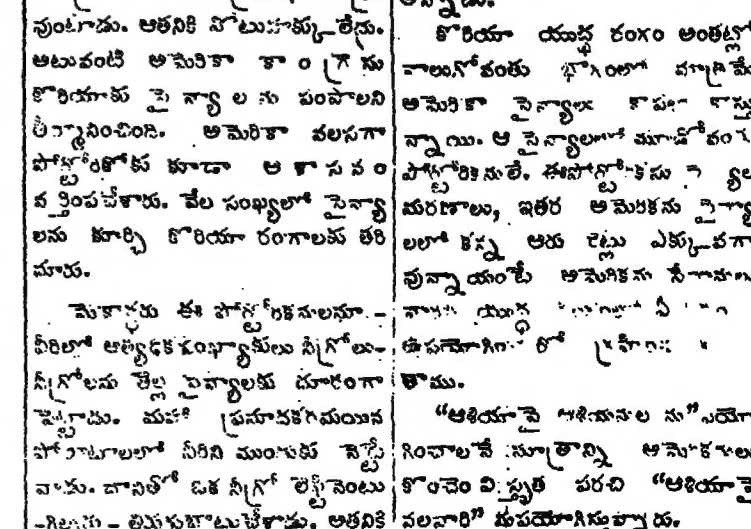 వుంటాడు. ఆతనికి నోటుహక్కు లేదు.
అటువంటి అమెరికా కాంగ్రెసు
కొరియాకు సైన్యాలను పంపాలని
తీర్మానించింది. అమెరికా వలసగా
పోర్టోరికోకు కూడా ఆ శాసనం
వర్తింపచేశారు. వేల సంఖ్యలో సైన్యా
లను కూర్చి కొరియా రంగాలకు తరి
మారు.
మెకార్థరు ఈ పోర్టోరికనులనూ -
వీరిలో అత్యధిక సంఖ్యాకులు నీగ్రోలు-
నీగ్రోలను తెల్ల సైన్యాలకు దూరంగా
పెట్టాడు. మహా ప్రమాదకరమయిన
పోరాటాలలో వీరిని ముందుకు నెట్టే
వాడు. దానితో ఒక నీగ్రో లెఫ్టినెంటు
తిరుగుబాటుచేశాడు. అతనికి
అన్నాడు.
కొరియా యుద్ధ రంగం అంతట్లో
నాలుగోవంతు భాగంలో మాత్రమే
అమెరికా సైన్యాలు కాపలా కాస్తు
న్నాయి. ఆ సైన్యాలలో మూడోవంతు
పోర్టోరికనులే. ఈ
మరణాలు, ఇతర అమెరికను సైన్యా
లలో కన్న ఆరు రెట్లు ఎక్కువగా
వున్నాయంటే అమెరికను సేనానులు
యుద్ధ
కాము.
“ఆశియాపై ఆశియనులను” వియో
గించాలనే సూత్రాన్ని అమెరికనులు
కొంచెం విస్తృత పరచి “ఆశియాపై
వలసవారి” నుపయోగిస్తున్నారు.